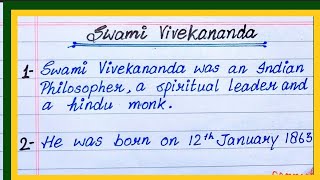 Swami Vivekananda
1- Swami Vivekananda was an Indian
Philosopher, a spiritual leader and
a hindu monk.
2- He was born on 12th January 1863